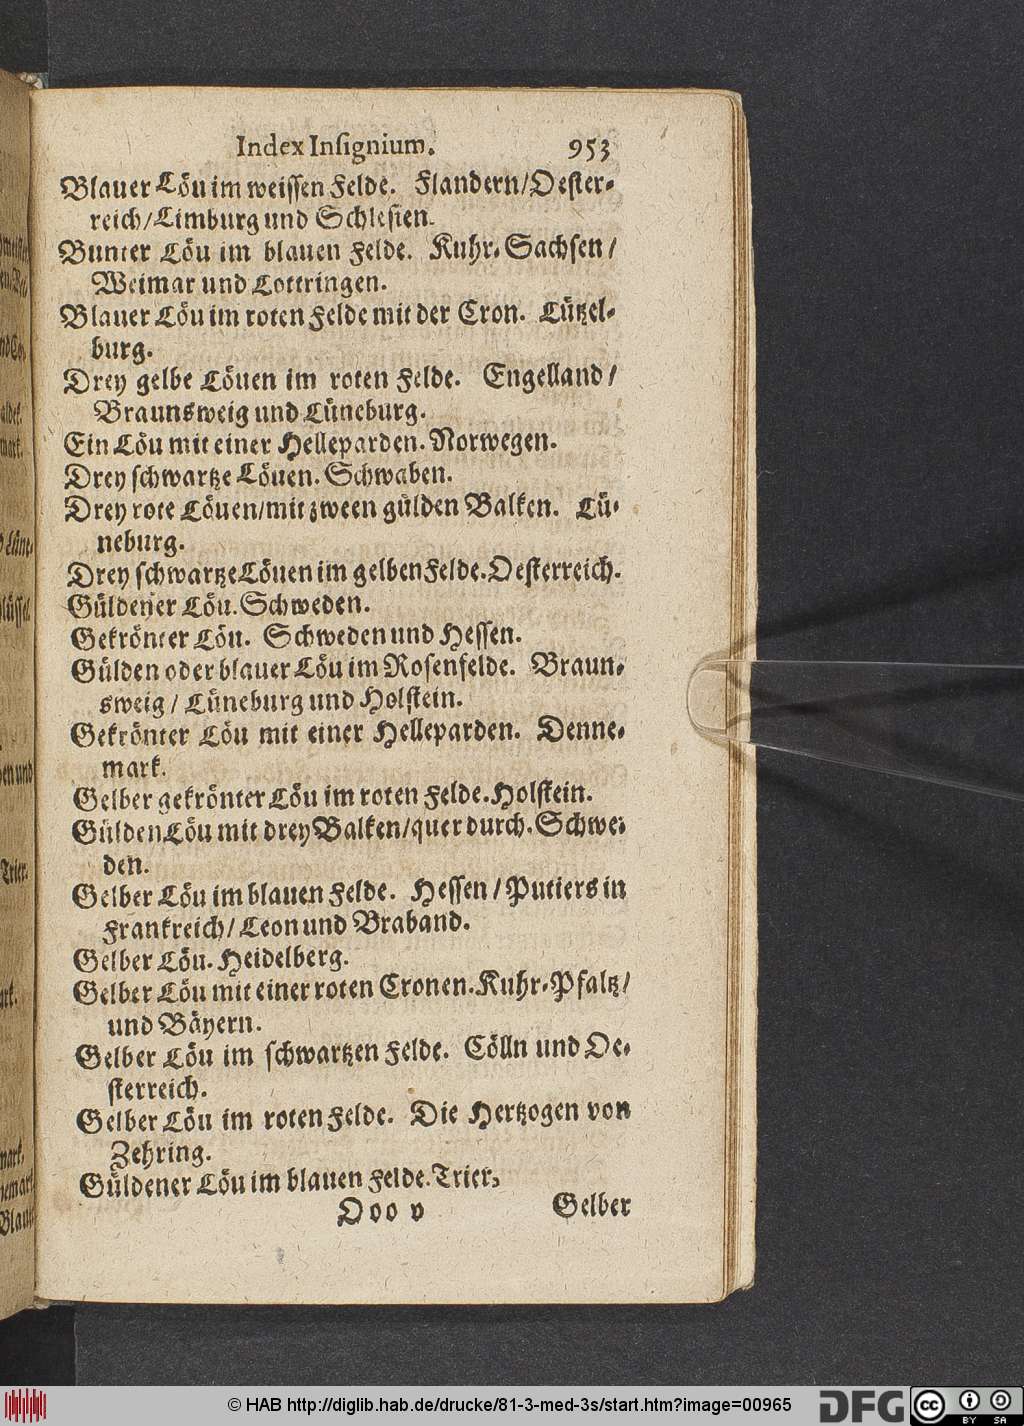 Index Inſignium. 953
Blauer Löu im weiſſen Felde. Flandern/Oeſter-
reich/Limburg und Schleſien.
Bunter Löu im blauen Felde. Kuhr-Sachſen/
Weimar und Lottringen.
Blauer Löu im roten Felde mit der Cron. Lützel-
burg.
Drey gelbe Löuen im roten Felde. Engelland/
Braunsweig und Lüneburg.
Ein Löu mit einer Helleparden. Norwegen.
Drey ſchwartze Löuen. Schwaben.
Drey rote Löuen/mit zween gülden Balken. Lü-
neburg.
Drey ſchwartze Löuen im gelben Felde. Oeſterreich.
Güldener Löu. Schweden.
Gekrönter Löu. Schweden und Heſſen.
Gülden oder blauer Löu im Roſenfelde. Braun-
sweig / Lüneburg und Holſtein.
Gekrönter Löu mit einer Helleparden. Denne-
mark.
Gelber gekrönter Löu im roten Felde. Holſtein.
Gülden Löu mit drey Balken/quer durch. Schwe-
den.
Gelber Löu im blauen Felde. Heſſen / Putiers in
Frankreich/ Leon und Braband.
Gelber Löu. Heidelberg.
Gelber Löu mit einer roten Cronen. Kuhr-Pfaltz/
und Bäyern.
Gelber Löu im ſchwartzen Felde. Cölln und Oe-
ſterreich.
Gelber Löu im roten Felde. Die Hertzogen von
Zehring.
Güldener Löu im blauen Felde. Trier.
Ooo v Gelber
© HAB http://diglib.hab.de/drucke/81-3-med-3s/start.htm?image=00965
DFG
cc BY SA